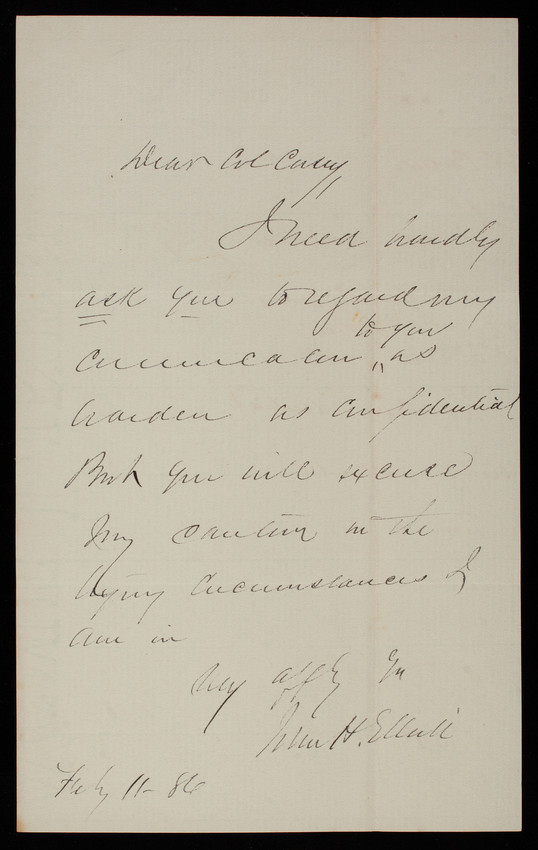 Dear Col Casey
I need hardly
ask you to regard my
to you
communication as
as confidential
But you will excuse
my caution in the
trying circumstances I
am in
Very affly Yrs
John H. Elliott
Feby 11 - 86